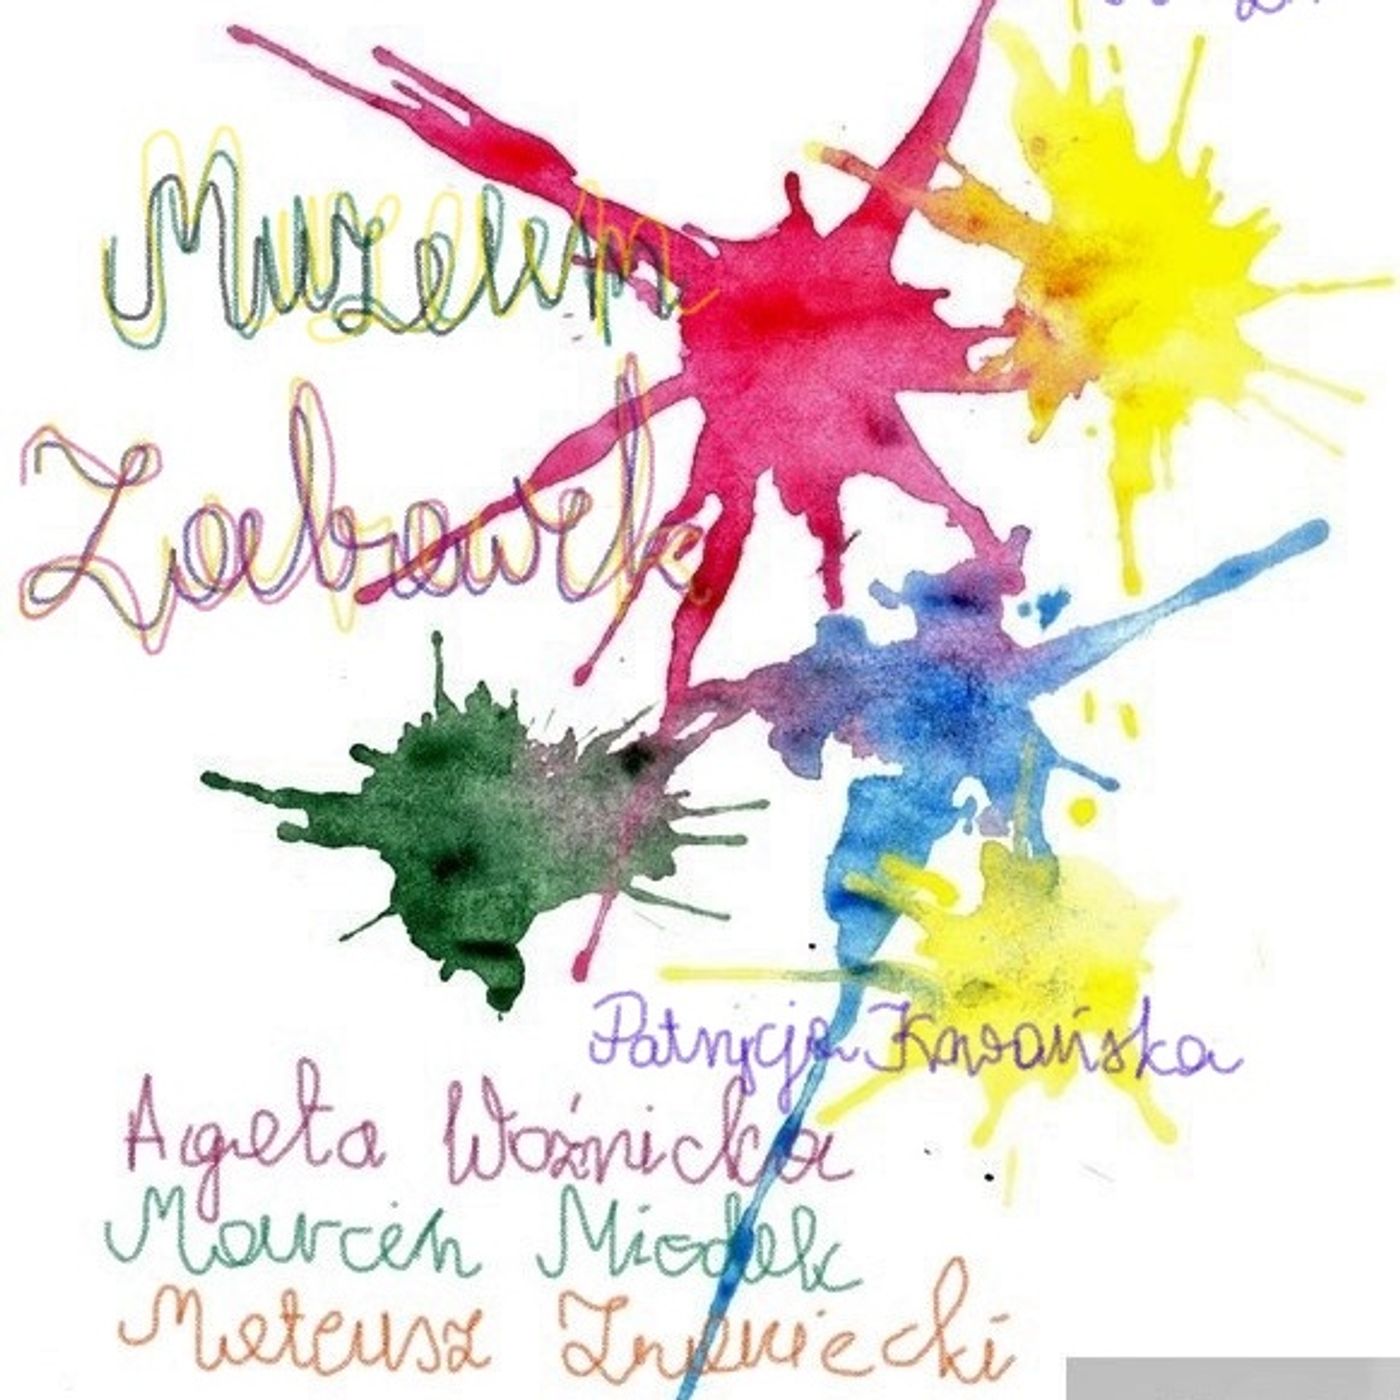 Muzeum
Zabawek
Patrycja Kwaśńska
Agata Woźnicka
Marcin Miodek
Mateusz